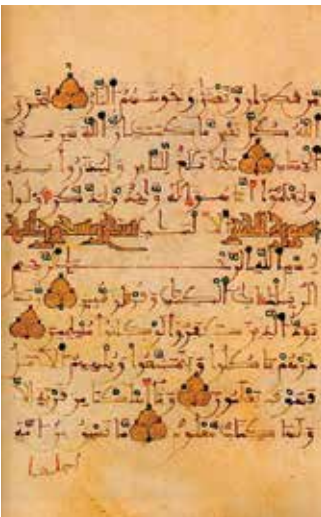 من قطران وتغشى وجوههم النار ليجزى
الله كل نفس ما كسبت ان الله سريع
الحساب هذا بلغ للناس ولينذروا به
وليعلموا انما هو اله وحد وليذكر اولوا
سورة الحجر الالبب
بسم الله الرحمن الرحيم
الر تلك ايت الكتب وقران مبين ربما
يود الذين كفروا لو كانوا مسلمين
ذرهم ياكلوا ويتمتعوا ويلههم الامل
فسوف يعلمون وما اهلكنا من قرية الا
ولها كتاب معلوم ما تسبق من امة
اجلها